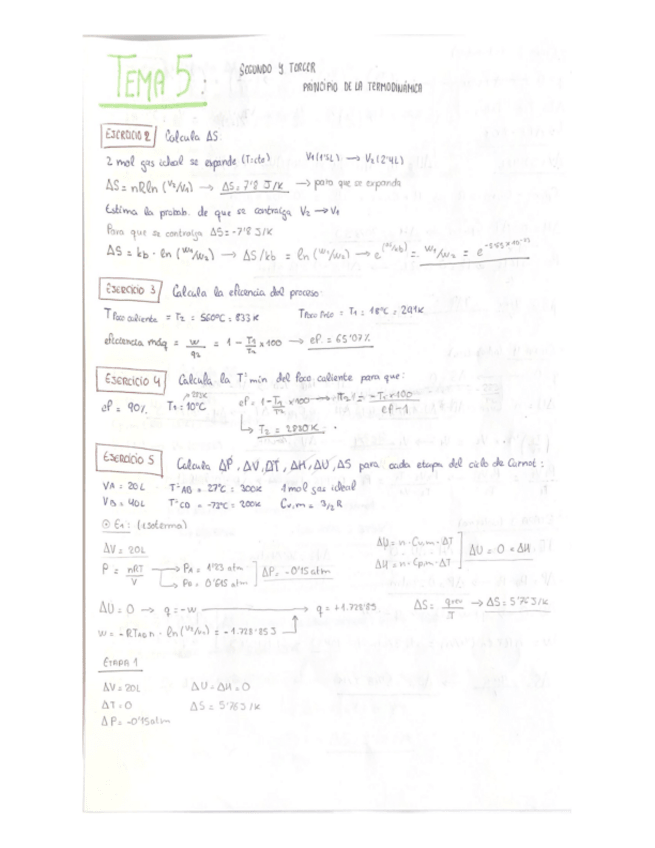 TEMA 5:
SEGUNDO Y TERCER
PRINCIPIO DE LA TERMODINÁMICA
EJERCICIO 2 Calcula ΔS:
2 mol gas ideal se expande (T=cte) V₁(1'5L) → V₂(2'4L)
ΔS = nRln(V₂/V₁) → ΔS = 7'8 J/K → para que se expanda
Estima la probab. de que se contraiga V₂ → V₁
Para que se contraiga ΔS = -7'8 J/K
ΔS = kb · ln(W₁/W₂) → ΔS/kb = ln(W₁/W₂) → e^(ΔS/kb) = W₁/W₂ = e
EJERCICIO 3 Calcula la eficencia del proceso:
T foco caliente = T₂ = 560ºC = 833K T foco frío = T₁ = 18ºC = 291K
eficiencia máq = w/q₂ = 1 - T₁/T₂ x100 → ef. = 65'07%
EJERCICIO 4 Calcula la Tª min del foco caliente para que:
ef = 90% T₁ = 10ºC ef = 1 - T₁/T₂ x100 → = -T₁x100/ef-1
T₂ = 2830K
EJERCICIO 5 Calcula ΔP, ΔV, ΔT, ΔH, ΔU, ΔS para cada etapa del ciclo de Carnot:
VA = 20L TªAB = 27ºC = 300K 1 mol gas ideal
VB = 40L TªCD = -73ºC = 200K Cv,m = 3/2 R
E₁: (isoterma)
ΔV = 20L
ΔU = n · Cv,m · ΔT
ΔH = n · Cp,m · ΔT
ΔU = 0 = ΔH
P = nRT/V → PA = 1'23 atm
→ PB = 0'615 atm
ΔP = -0'15 atm
ΔU = 0 → q = -w → q = +1.728'85 ΔS = qrev/T → ΔS = 5'763/K
w = -RTAB n · ln(V₂/V₁) = -1.728'85J
ETAPA 1
ΔV = 20L ΔU = ΔH = 0
ΔT = 0 ΔS = 5'763/K
ΔP = -0'15atm